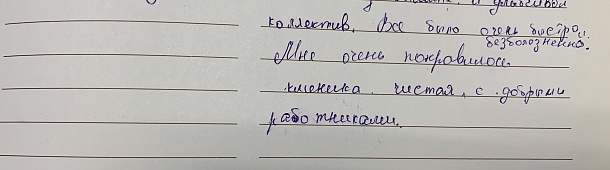 и
коллектив. Все было очень быстро и
безболезненно.
Мне очень понравилось.
клиника чистая, с добрыми
работниками.